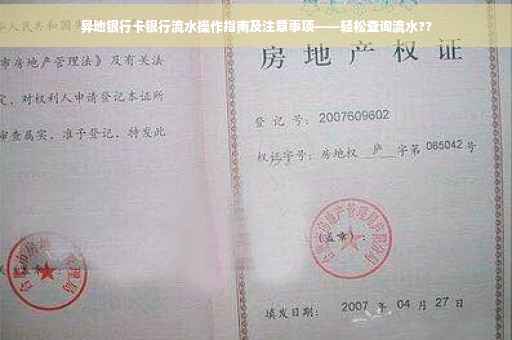 异地银行卡银行流水操作指南及注意事项——轻松查询流水??
人民共和国
市房地产管理法》及有关法
定,对权利人申请登记本证所
审查属实,准予登记,特发此
房地产权证
登记号:2007609602
权证字号:房地权 庐 字第 065042 号
(盖章):
填发日期: 2007 年 04 月 27 日